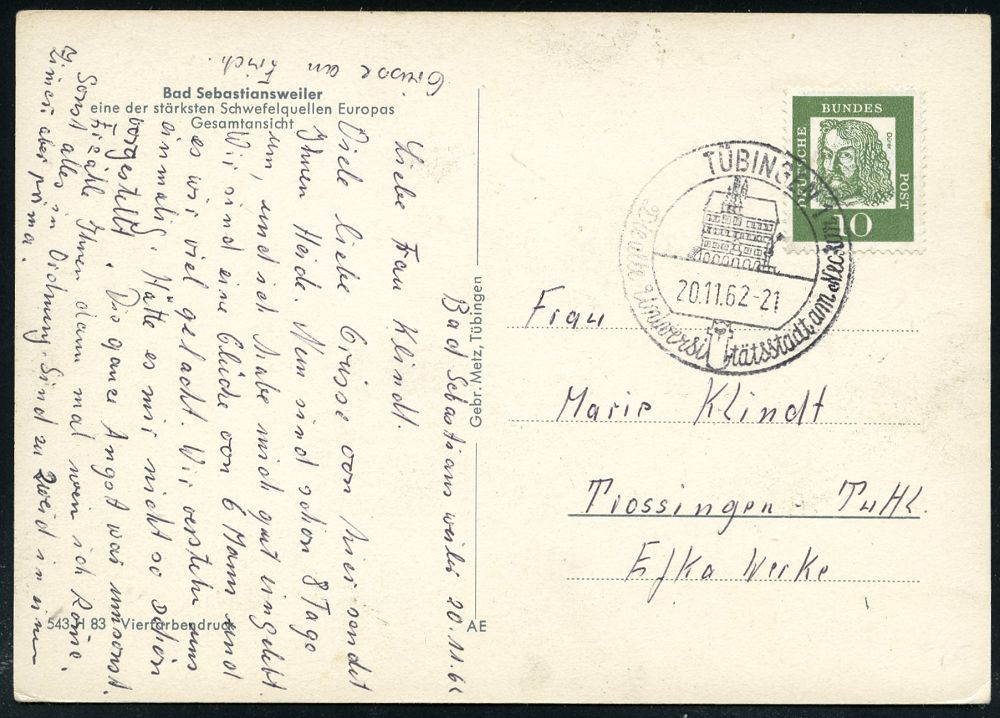 Bad Sebastiansweiler
eine der stärksten Schwefelquellen Europas
Gesamtansicht
Bad Sebastiansweiler 20.11.62
Liebe Frau Klindt.
Viele liebe Grüsse von hier sendet
Ihnen Heide. Nun sind schon 8 Tage
um, und ich habe mich gut eingelebt.
Wir sind eine Clique von 6 Mann und
es wir viel gelacht. Wir verstehn uns
einmalig. Hätte es mir nicht so schön
vorgestellt. Die ganze Angst war umsonst.
Erzähle Ihnen dann mal wen ich kome.
Sonst alles in Ordnung. Sind zu zweid in einem
Zimer aber prima.
Grüsse an
543 H 83 Vierfarbendruck
AE
Gebr. Metz, Tübingen
DEUTSCHE BUNDES POST
Dürer
10
TÜBINGEN 1
20.11.62-21
Die alte Universitätsstadt am Neckar
Frau
Marie Klindt
Trossingen Tuttl.
Efka Werke